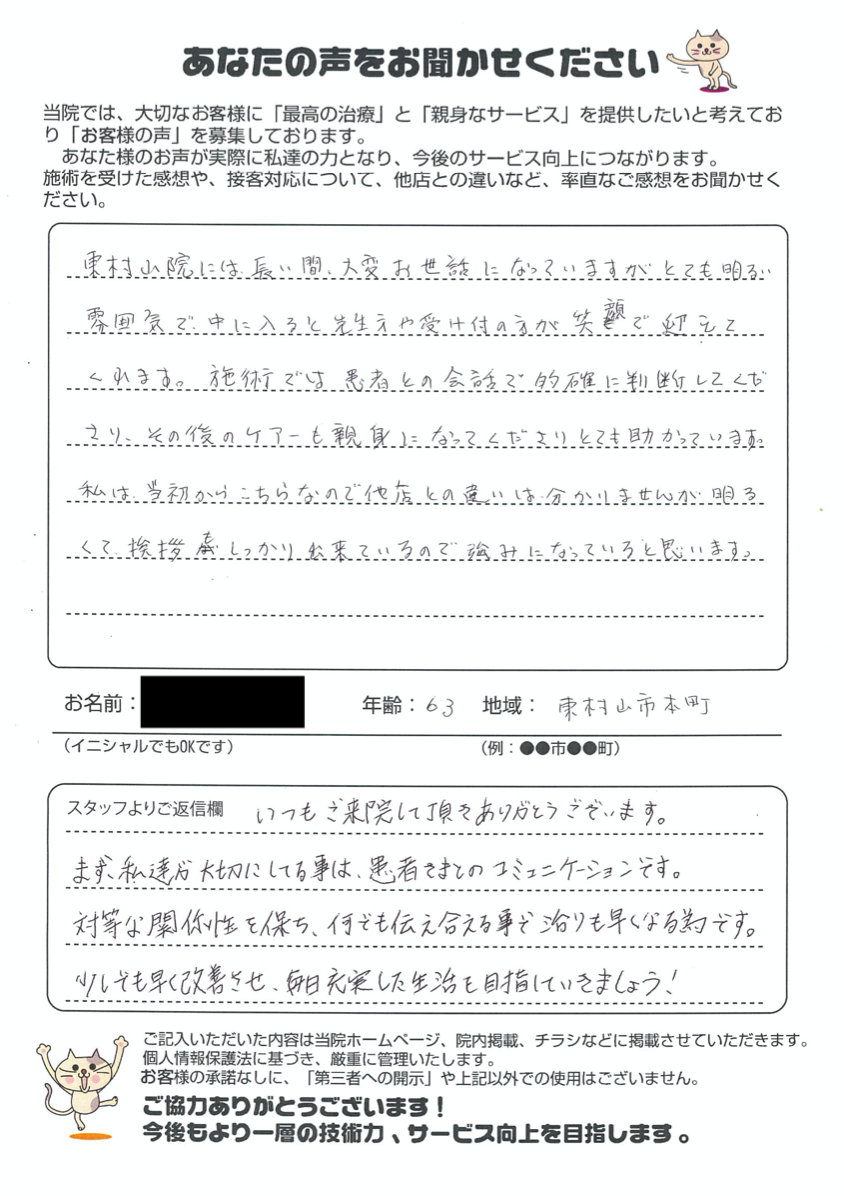 あなたの声をお聞かせください
当院では、大切なお客様に「最高の治療」と「親身なサービス」を提供したいと考えてお
り「お客様の声」を募集しております。
あなた様のお声が実際に私達の力となり、今後のサービス向上につながります。
施術を受けた感想や、接客対応について、他店との違いなど、率直なご感想をお聞かせく
ださい。
東村山院には長い間、大変お世話になっていますがとても明るい
雰囲気で中に入ると先生方や受け付の方が笑顔で迎えて
くれます。施術では患者との会話で的確に判断してくだ
さり、その後のケアーも親身になってくださりとても助かっています。
私は当初からこちらなので他店との違いは分かりませんが明る
くて、挨拶しっかり出来ているので強みになっていると思います。
お名前：
年齢：63 地域：東村山市本町
（イニシャルでもOKです）
（例：●●市●●町）
スタッフよりご返信欄 いつもご来院して頂きありがとうございます。
まず、私達が大切にしてる事は、患者さまとのコミュニケーションです。
対等な関係性を保ち、何でも伝え合える事で治りも早くなる為です。
少しでも早く改善させ、毎日充実した生活を目指していきましょう！
ご記入いただいた内容は当院ホームページ、院内掲載、チラシなどに掲載させていただきます。
個人情報保護法に基づき、厳重に管理いたします。
お客様の承諾なしに、「第三者への開示」や上記以外での使用はございません。
ご協力ありがとうございます！
今後もより一層の技術力、サービス向上を目指します。